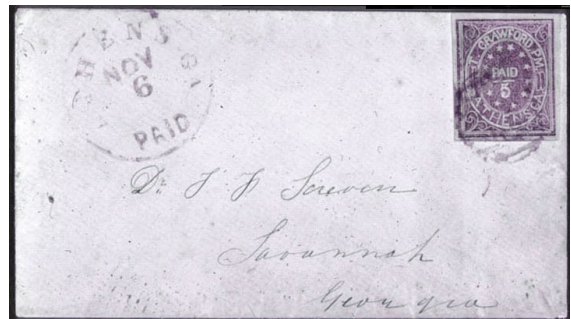 ATHENS GA.
NOV
6
PAID
T. CRAWFORD, P.M.
PAID
5
ATHENS, GA.
Dr. J P Screven
Savannah
Georgia